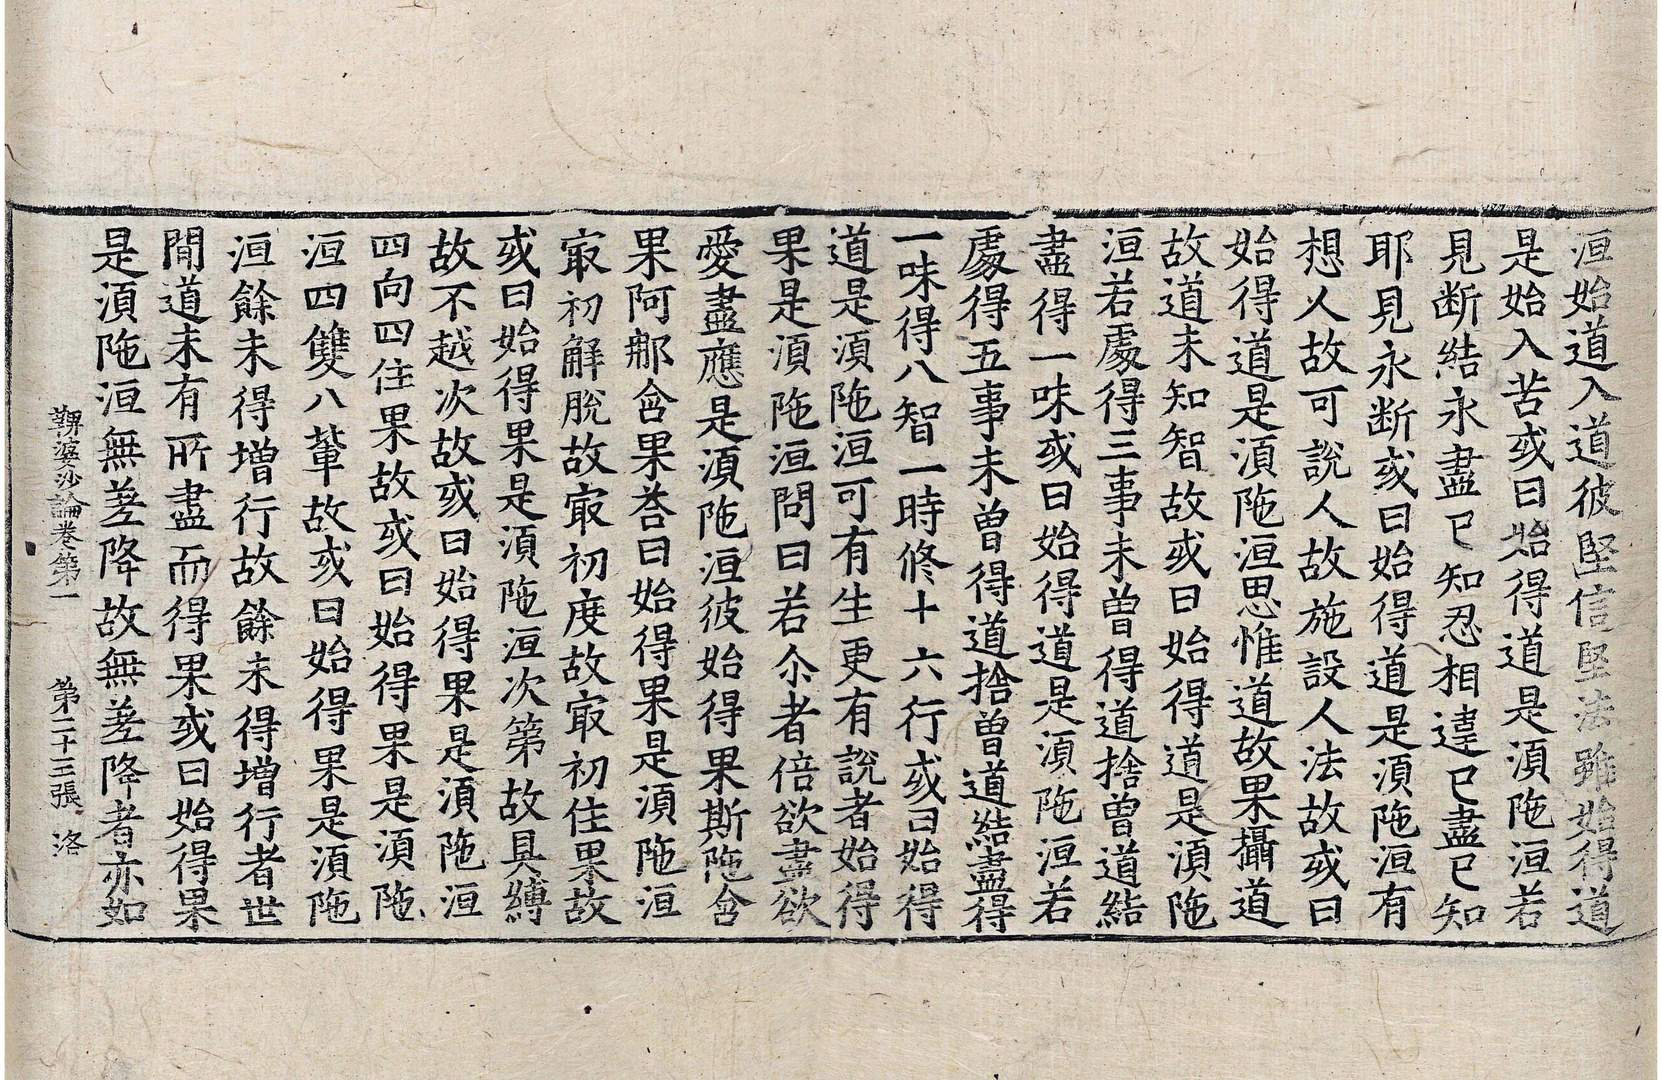 洹始道入道彼堅信堅法雖始得道
是始入苦或曰始得道是湏陁洹若
見断結永盡已知忍相違已盡已知
耶見永断或曰始得道是湏陁洹有
想人故可說人故施設人法故或曰
始得道是湏陁洹思惟道故果攝道
故道未知智故或曰始得道是湏陁
洹若處得三事未曾得道捨曾道結
盡得一味或曰始得道是湏陁洹若
處得五事未曾得道捨曾道結盡得
一味得八智一時修十六行或曰始得
道是湏陁洹可有生更有說者始得
果是湏陁洹問曰若尒者倍欲盡欲
愛盡應是湏陁洹彼始得果斯陁含
果阿那含果荅曰始得果是湏陁洹
冣初解脫故冣初度故冣初住果故
或曰始得果是湏陁洹次第故具縛
故不越次故或曰始得果是湏陁洹
四向四住果故或曰始得果是湏陁
洹四雙八輩故或曰始得果是湏陁
洹餘未得增行故餘未得增行者世
間道未有所盡而得果或曰始得果
是湏陁洹無差降故無差降者亦如
鞞婆沙論卷第一 第二十三張 洛